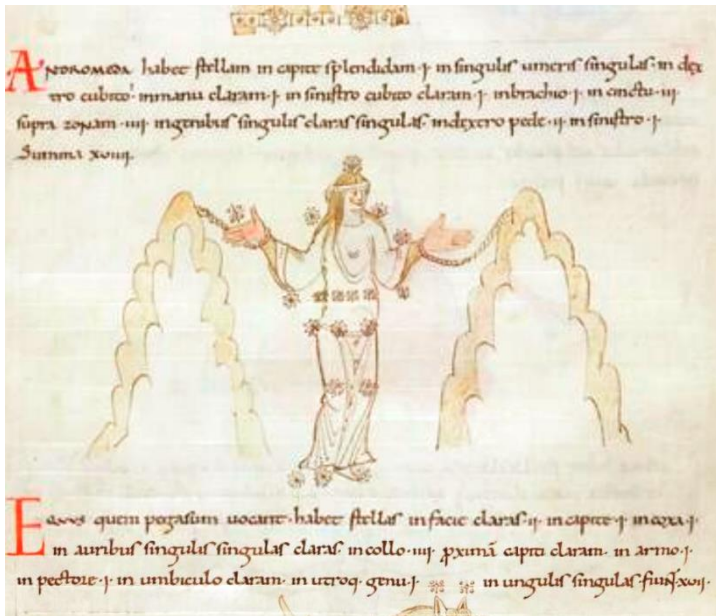 ANDROMEDA habet stellam in capite splendidam·i· in singulis umeris singulas· in dex
tro cubito· in manu claram·i· in sinistro cubito claram·i· in brachio·i· in cinctu·iii·
supra zonam·iiii· in genibus singulis claras singulas· in dextro pede·ii· in sinistro·i·
Summa xviiii.
EQVVS quem pegasum uocant· habet stellas in facie claras·ii· in capite·i· in coxa·i·
in auribus singulis singulas claras· in collo·iiii· pximā capiti claram· in armo·i·
in pectore·i· in umbiculo claram· in utroq· genu·i· in ungulis singulas· fiunt·xvii·